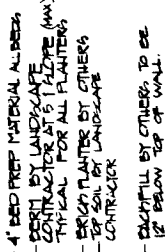 4" BED PREP MATERIAL ALL BEDS
BERM BY LANDSCAPE
CONTRACTOR AT 5:1 SLOPE (MAX)
TYPICAL FOR ALL PLANTERS
BRICK PLANTER BY OTHERS
TOP SOIL BY LANDSCAPE
CONTRACTOR
BACKFILL BY OTHERS TO BE
12" BELOW TOP OF WALL.